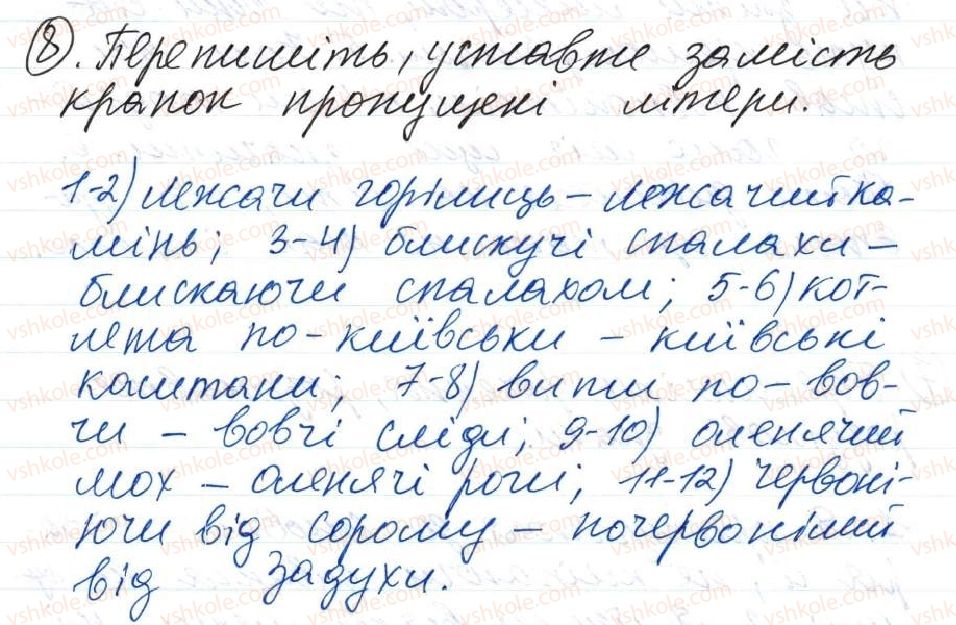 8. Перепишіть, уставте замість
крапок пропущені літери.
1-2) лежачи горілиць – лежачий ка-
мінь; 3-4) блискучі спалахи –
блискаючи спалахом; 5-6) кот-
лета по-київськи – київські
каштани; 7-8) вити по-вов-
чи – вовчі сліди; 9-10) оленячий
мох – оленячі роги; 11-12) червоні-
ючи від сорому – почервонілий
від задухи.